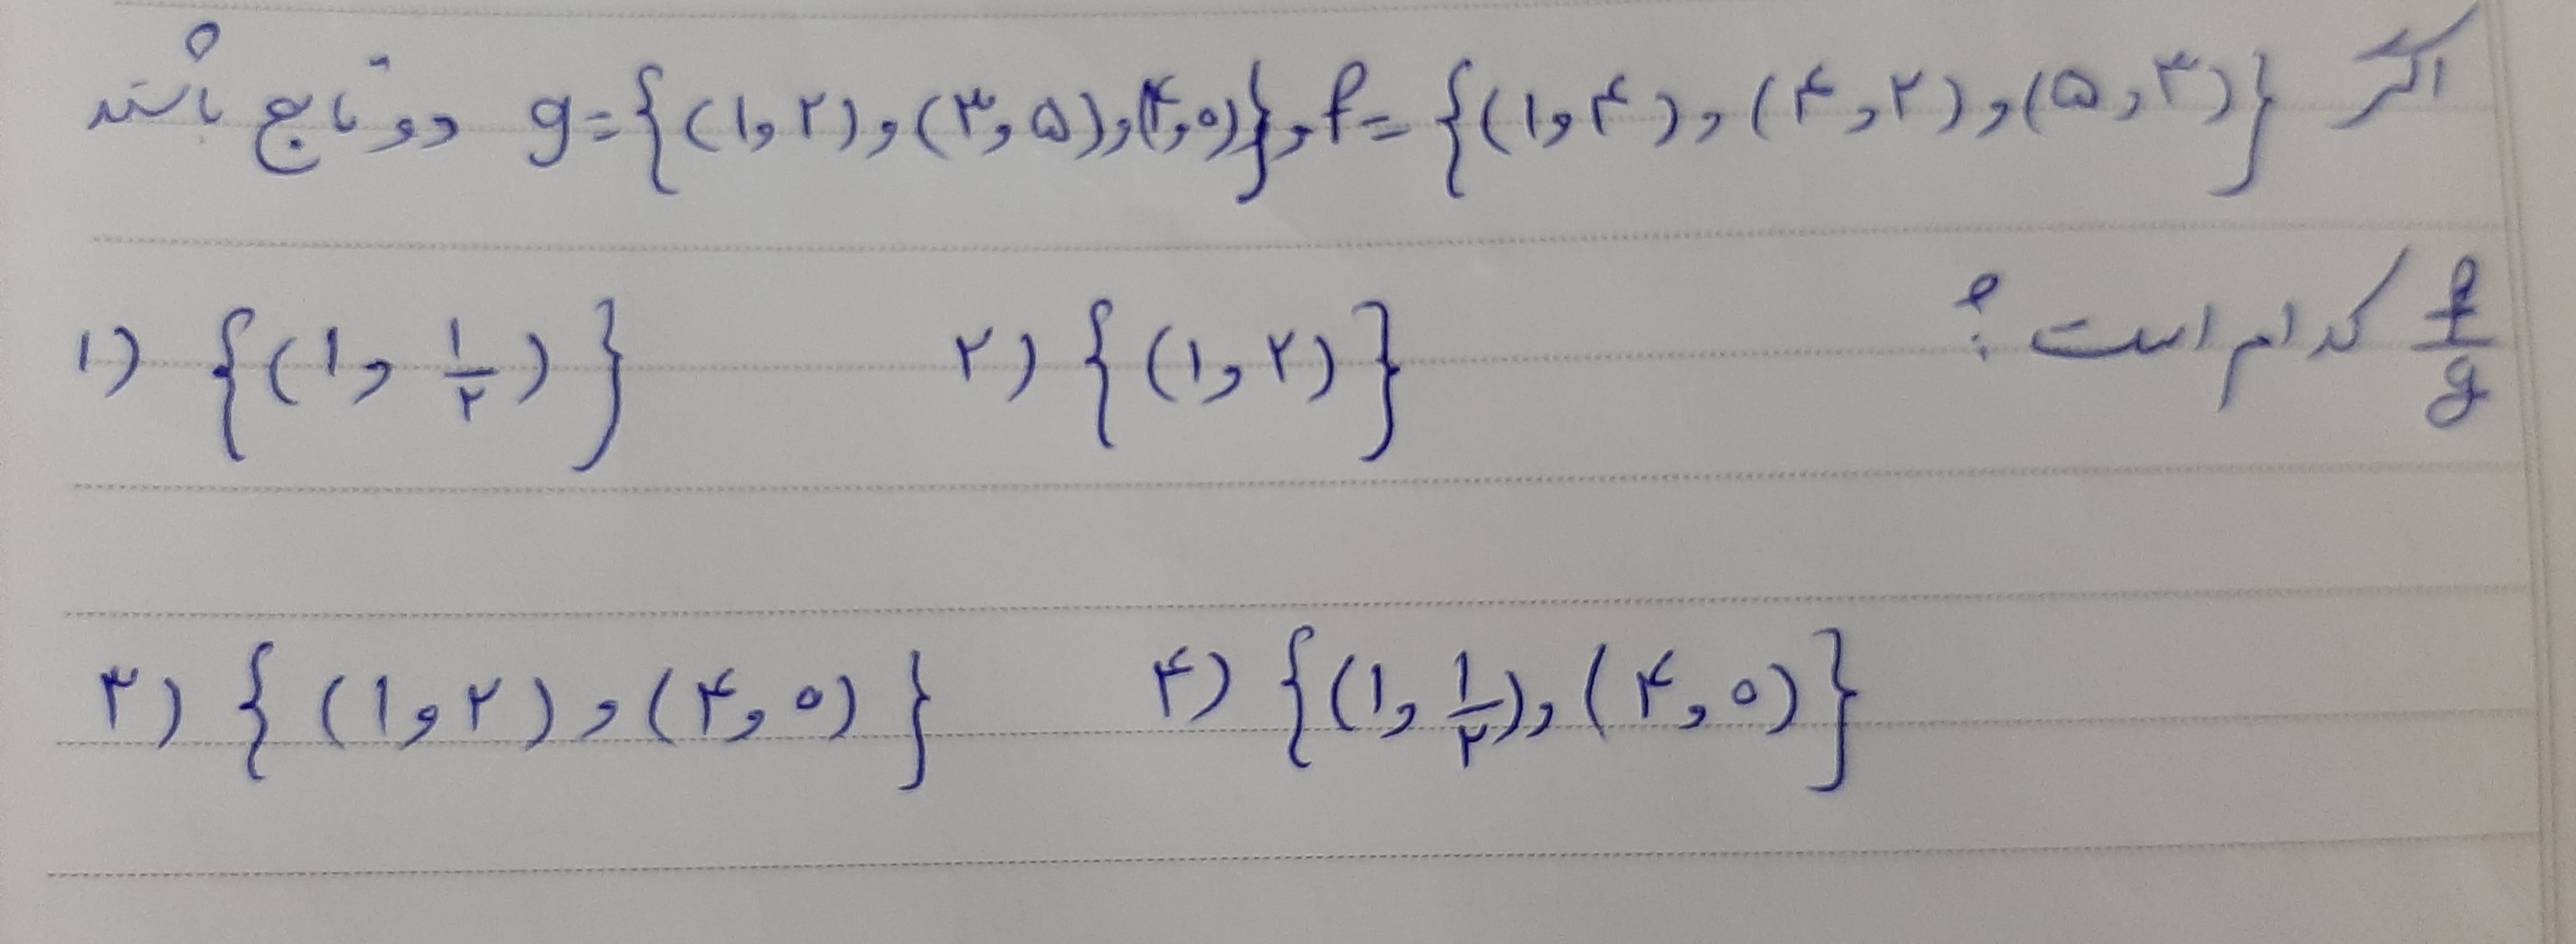 اگر f = {(۱,۴), (۴,۲), (۵,۳)} , g = {(۱,۲), (۳,۵), (۴,۰)} دو تابع باشند
f/g کدام است ؟
۱) {(۱, ۱/۲)} ۲) {(۱,۲)}
۳) {(۱,۲), (۴,۰)} ۴) {(۱, ۱/۲), (۴,۰)}